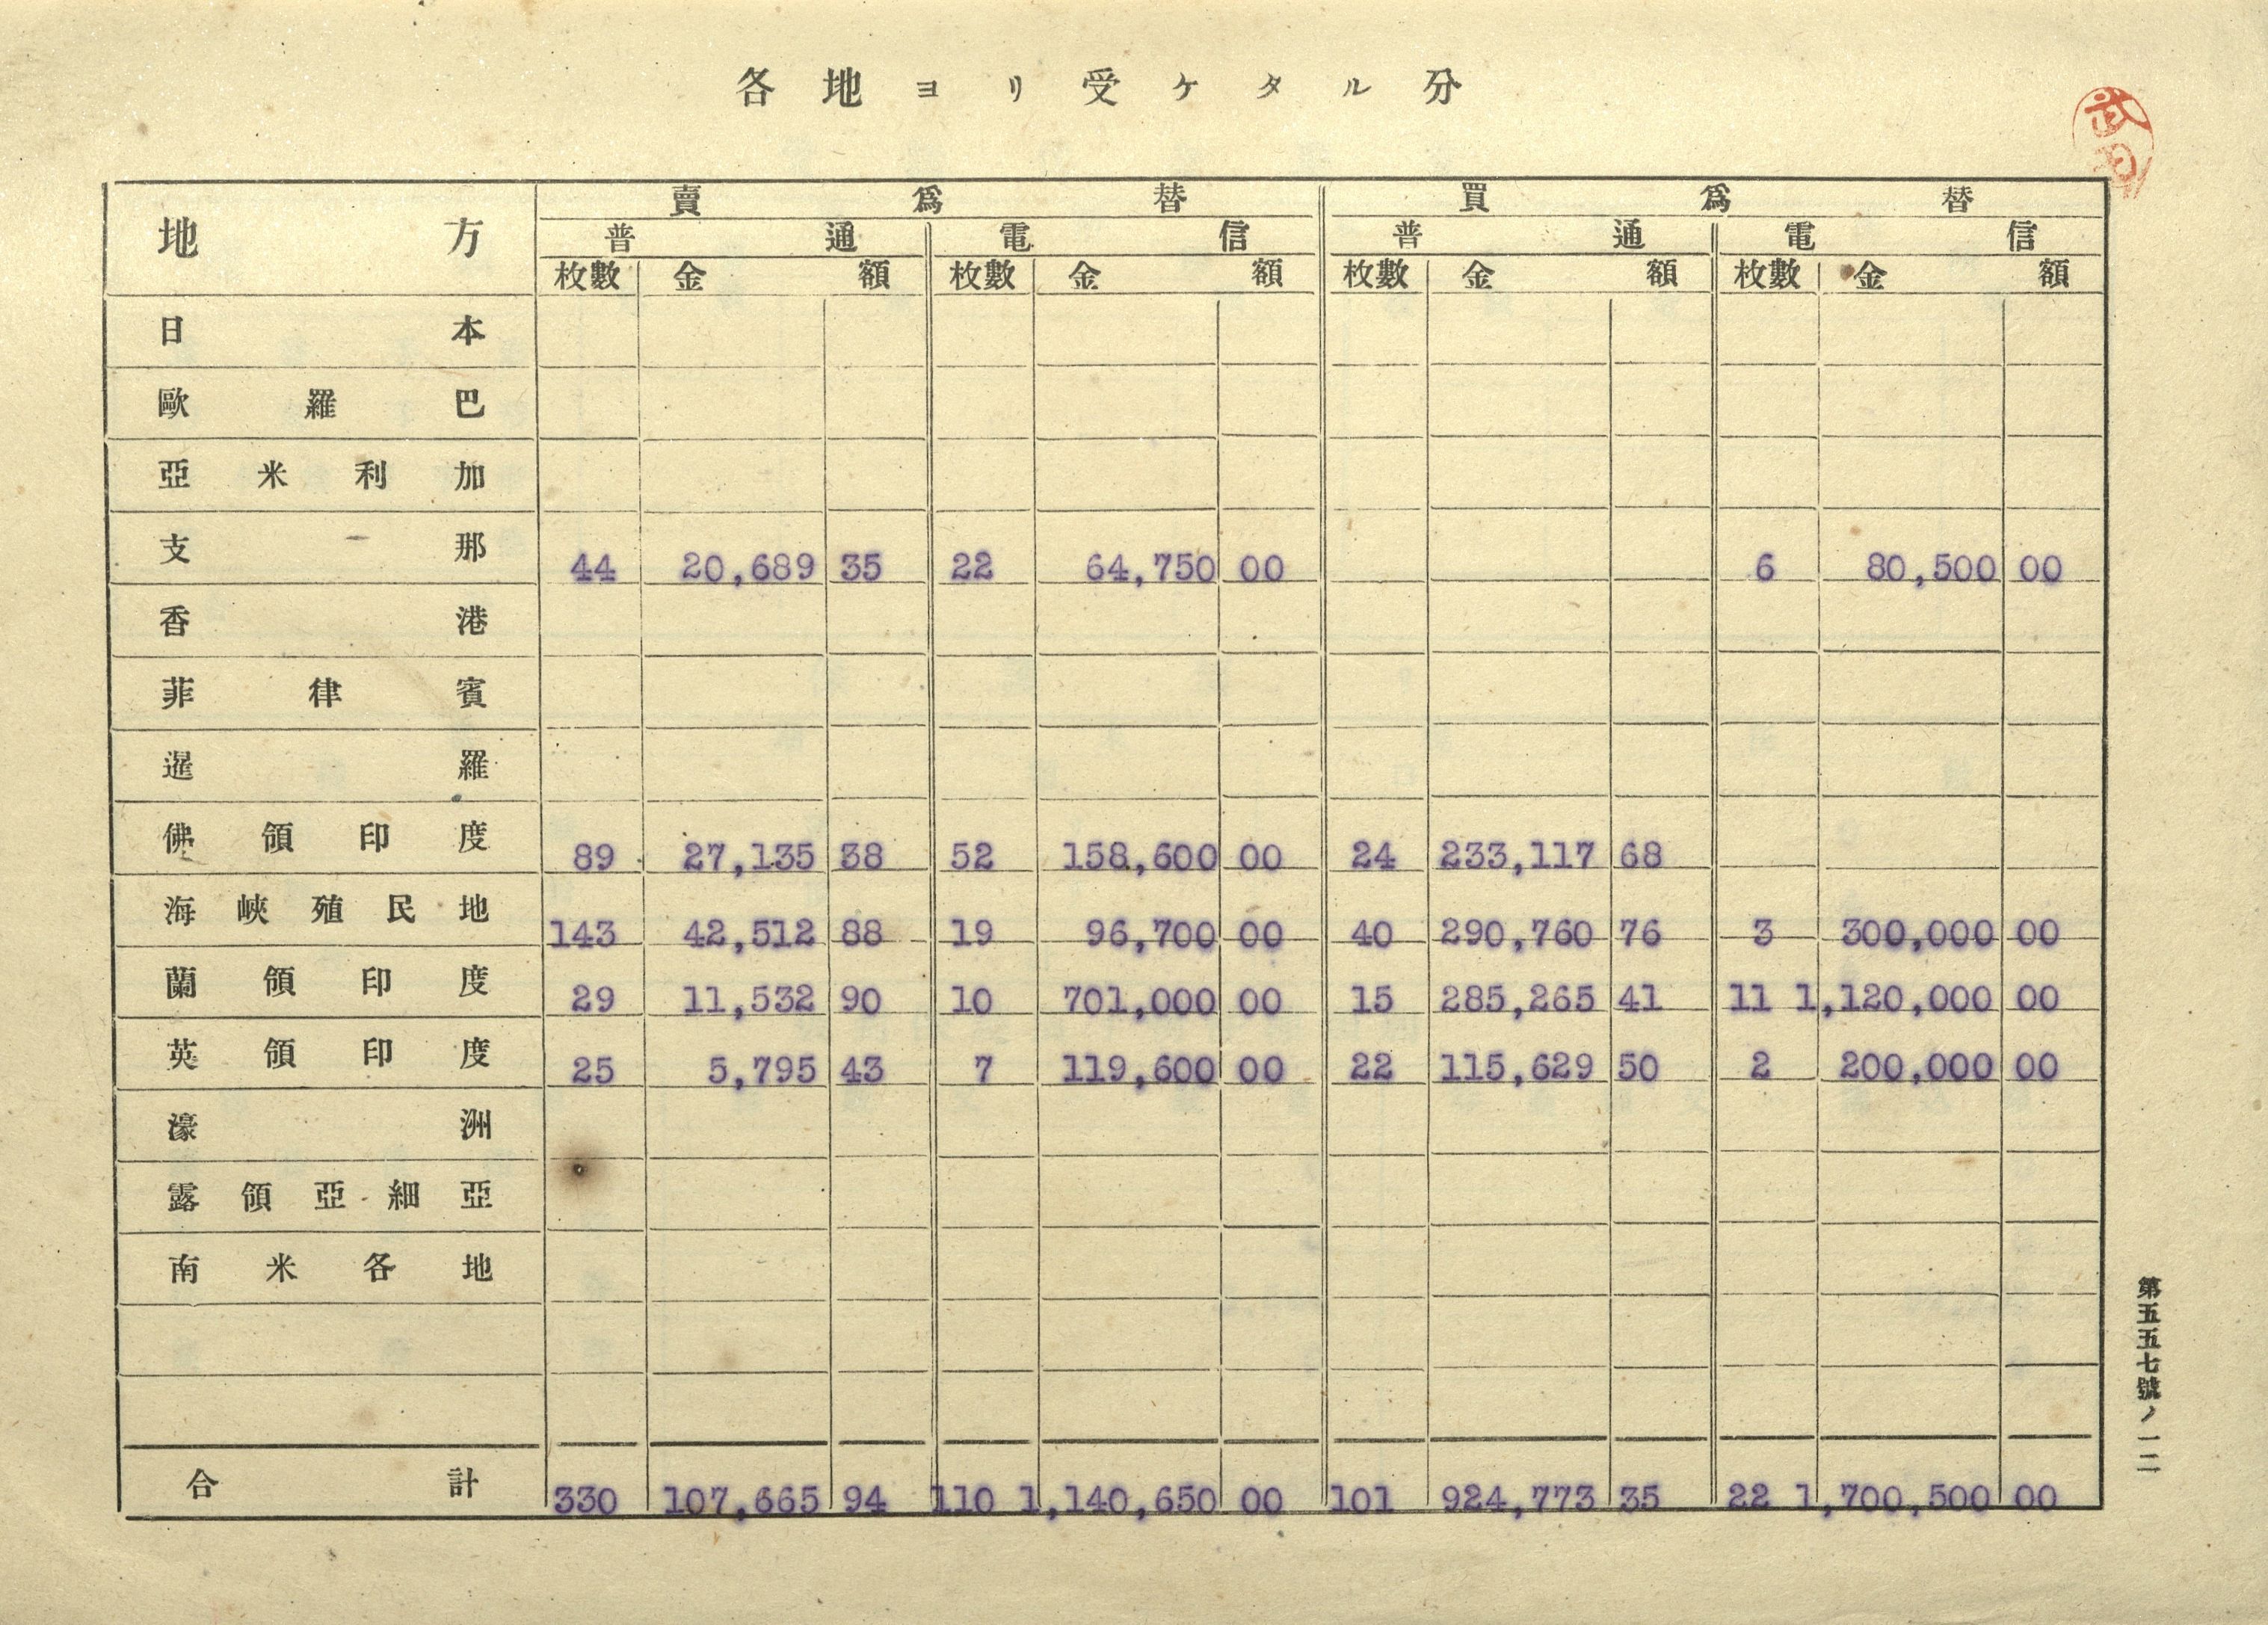 各地ヨリ受ケタル分
地方 賣爲替 買爲替
普通 電信 普通 電信
枚數 金額 枚數 金額 枚數 金額 枚數 金額
日本
歐羅巴
亞米利加
支那 44 20,689 35 22 64,750 00 6 80,500 00
香港
菲律賓
暹羅
佛領印度 89 27,135 38 52 158,600 00 24 233,117 68
海峽殖民地 143 42,512 88 19 96,700 00 40 290,760 76 3 300,000 00
蘭領印度 29 11,532 90 10 701,000 00 15 285,265 41 11 1,120,000 00
英領印度 25 5,795 43 7 119,600 00 22 115,629 50 2 200,000 00
濠洲
露領亞細亞
南米各地
合計 330 107,665 94 110 1,140,650 00 101 924,773 35 22 1,700,500 00
第五五七號ノ一二